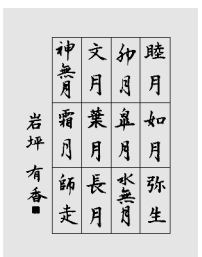 睦月
如月
弥生
卯月
皐月
水無月
文月
葉月
長月
神無月
霜月
師走
岩坪 有香